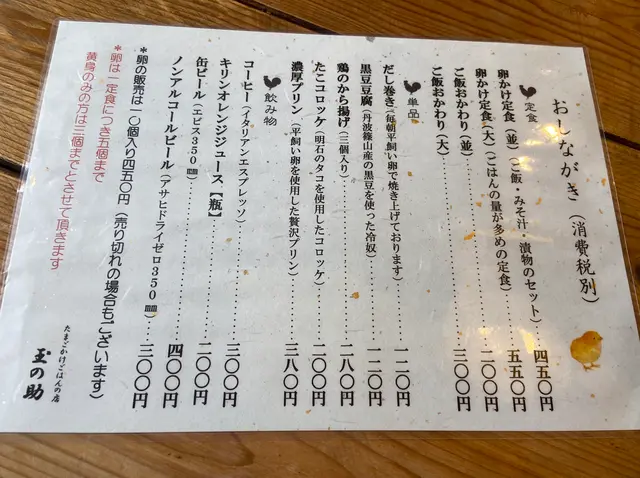 おしながき（消費税別）
定食
卵かけ定食（並）（ご飯・みそ汁・漬物のセット）…四五〇円
卵かけ定食（大）（ごはんの量が多めの定食）…五五〇円
ご飯おかわり（並）…二〇〇円
ご飯おかわり（大）…三〇〇円
単品
だし巻き（毎朝平飼い卵で焼き上げております）…一二〇円
黒豆豆腐（丹波篠山産の黒豆を使った冷奴）…一二〇円
鶏のから揚げ（三個入り）…二八〇円
たこコロッケ（明石のタコを使用したコロッケ）…二〇〇円
濃厚プリン（平飼い卵を使用した贅沢プリン）…三八〇円
飲み物
コーヒー（イタリアンエスプレッソ）…三〇〇円
キリンオレンジジュース【瓶】…二〇〇円
缶ビール（エビス350㎖）…四〇〇円
ノンアルコールビール（アサヒドライゼロ350㎖）…三〇〇円
＊卵の販売は一〇個入り四五〇円（売り切れの場合もございます）
＊卵は一定食につき五個まで
黄身のみの方は三個までとさせて頂きます
たまごかけごはんの店
玉の助